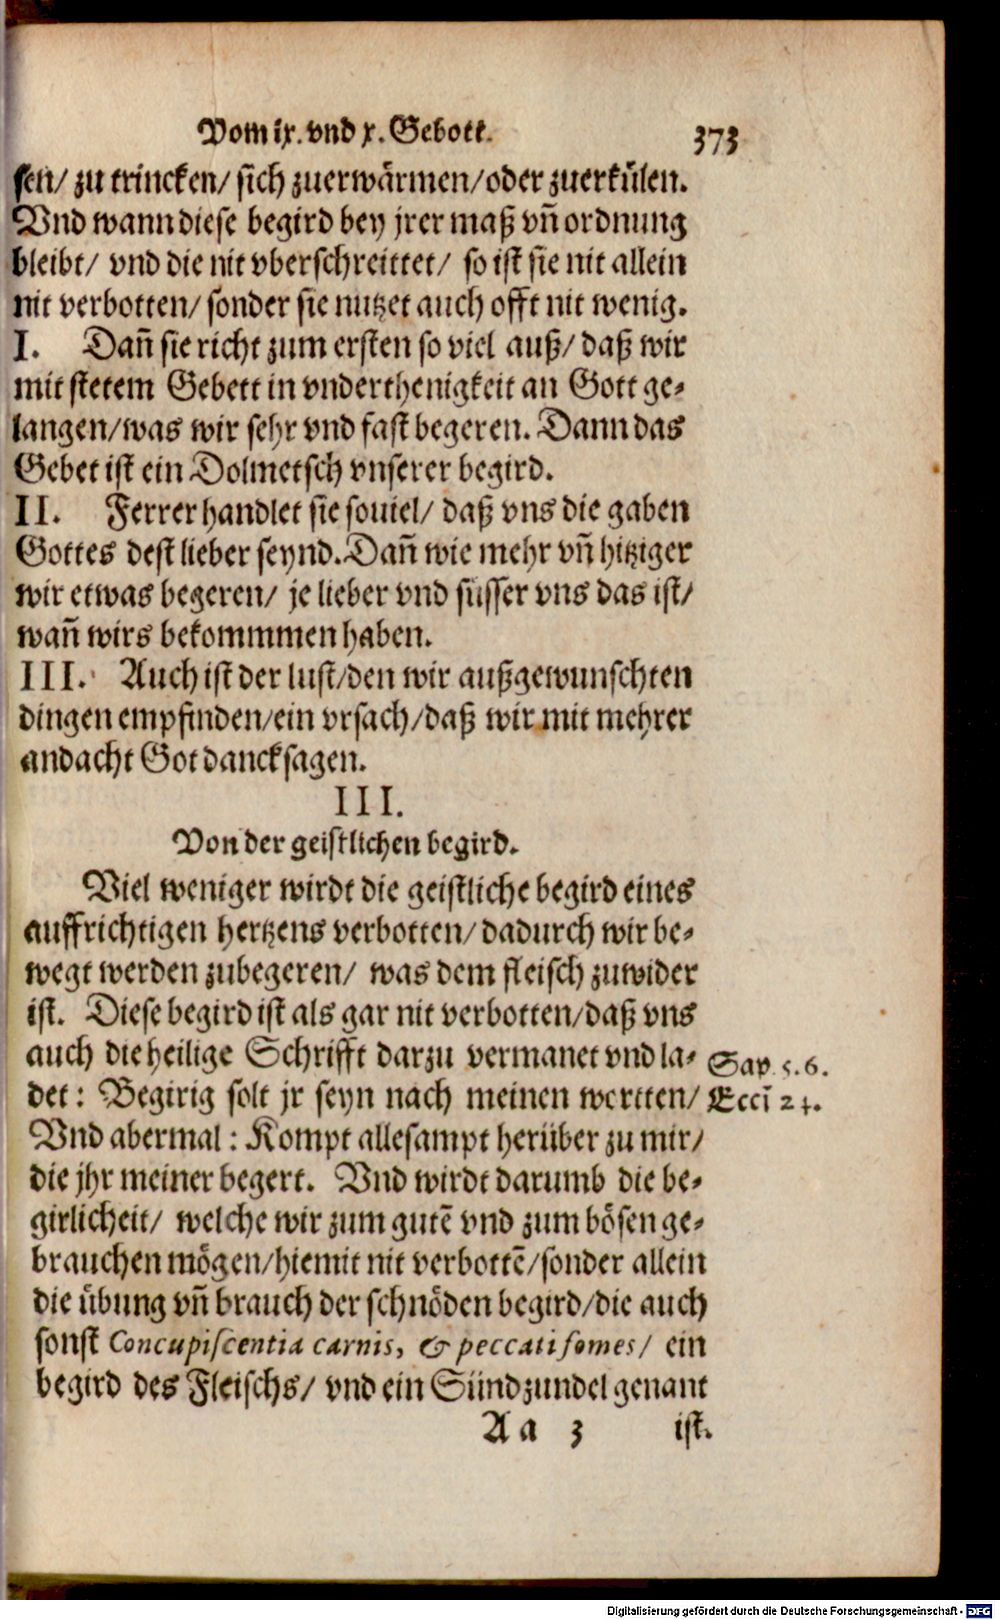 Vom ix. vnd x. Gebott. 373
sen/ zu trincken/ sich zuerwärmen/oder zuerkülen.
Vnd wann diese begird bey jrer maß vn̄ ordnung
bleibt/ vnd die nit vberschreittet/ so ist sie nit allein
nit verbotten/ sonder sie nutzet auch offt nit wenig.
I. Dan̄ sie richt zum ersten so viel auß/ daß wir
mit stetem Gebett in vnderthenigkeit an Gott ge-
langen/was wir sehr vnd fast begeren. Dann das
Gebet ist ein Dolmetsch vnserer begird.
II. Ferrer handlet sie souiel/ daß vns die gaben
Gottes dest lieber seynd. Dan̄ wie mehr vn̄ hitziger
wir etwas begeren/ je lieber vnd süsser vns das ist/
wan̄ wirs bekommmen haben.
III. Auch ist der lust/den wir außgewunschten
dingen empfinden/ein vrsach/daß wir mit mehrer
andacht Got dancksagen.
III.
Von der geistlichen begird.
Viel weniger wirdt die geistliche begird eines
auffrichtigen hertzens verbotten/ dadurch wir be-
wegt werden zubegeren/ was dem fleisch zuwider
ist. Diese begird ist als gar nit verbotten/daß vns
auch die heilige Schrifft darzu vermanet vnd la- Sap. 5.6.
det: Begirig solt jr seyn nach meinen wortten/ Eccī 24.
Vnd abermal: Kompt allesampt herüber zu mir/
die jhr meiner begert. Vnd wirdt darumb die be-
girlicheit/ welche wir zum gutē vnd zum bösen ge-
brauchen mögen/hiemit nit verbottē/sonder allein
die übung vn̄ brauch der schnöden begird/die auch
sonst Concupiscentia carnis, & peccati fomes/ ein
begird des Fleischs/ vnd ein Sündzundel genant
Aa 3 ist.
Digitalisierung gefördert durch die Deutsche Forschungsgemeinschaft - DFG